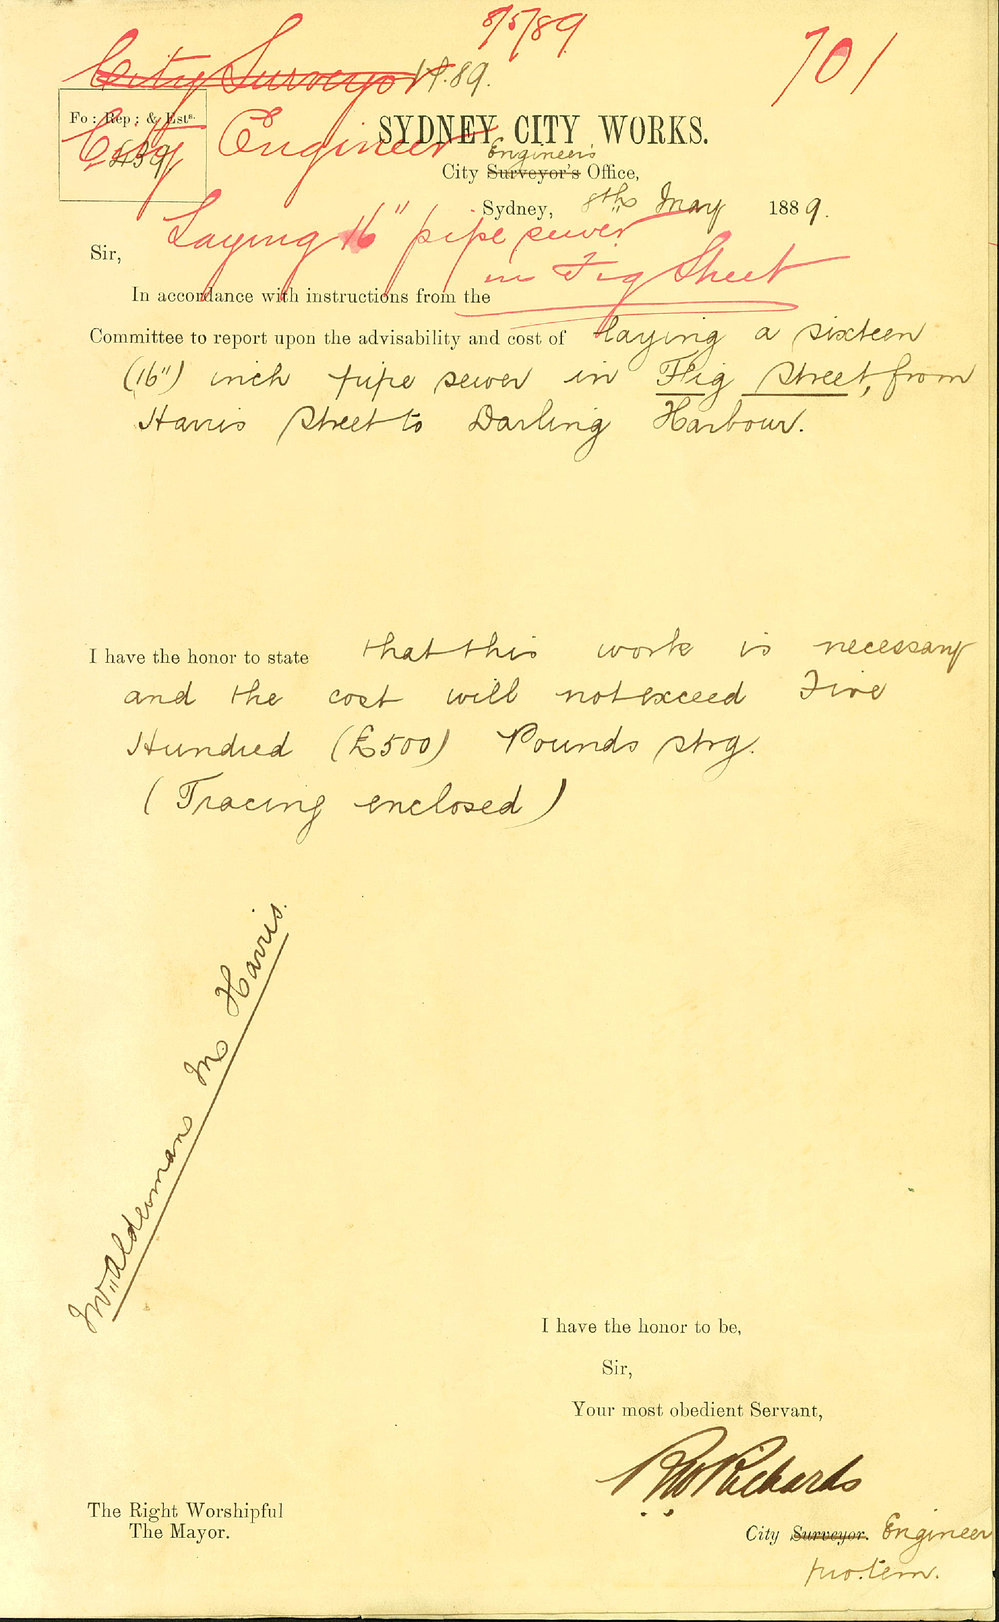 8/5/89
701
City Surveyor
18.89.
Fo: Rep; & Ests.
439
City Engineer
SYDNEY CITY WORKS.
Engineer's
City Surveyor's Office,
Sydney, 8th May 1889.
Laying 16" pipe sewer
in Fig Street
Sir,
In accordance with instructions from the
Committee to report upon the advisability and cost of laying a sixteen
(16") inch pipe sewer in Fig Street, from
Harris Street to Darling Harbour.
I have the honor to state that this work is necessary
and the cost will not exceed Five
Hundred (£500) Pounds strg.
(Tracing enclosed)
Mr Alderman M Harris.
I have the honor to be,
Sir,
Your most obedient Servant,
RW Richards
The Right Worshipful
The Mayor.
City Surveyor. Engineer
pro. tem.